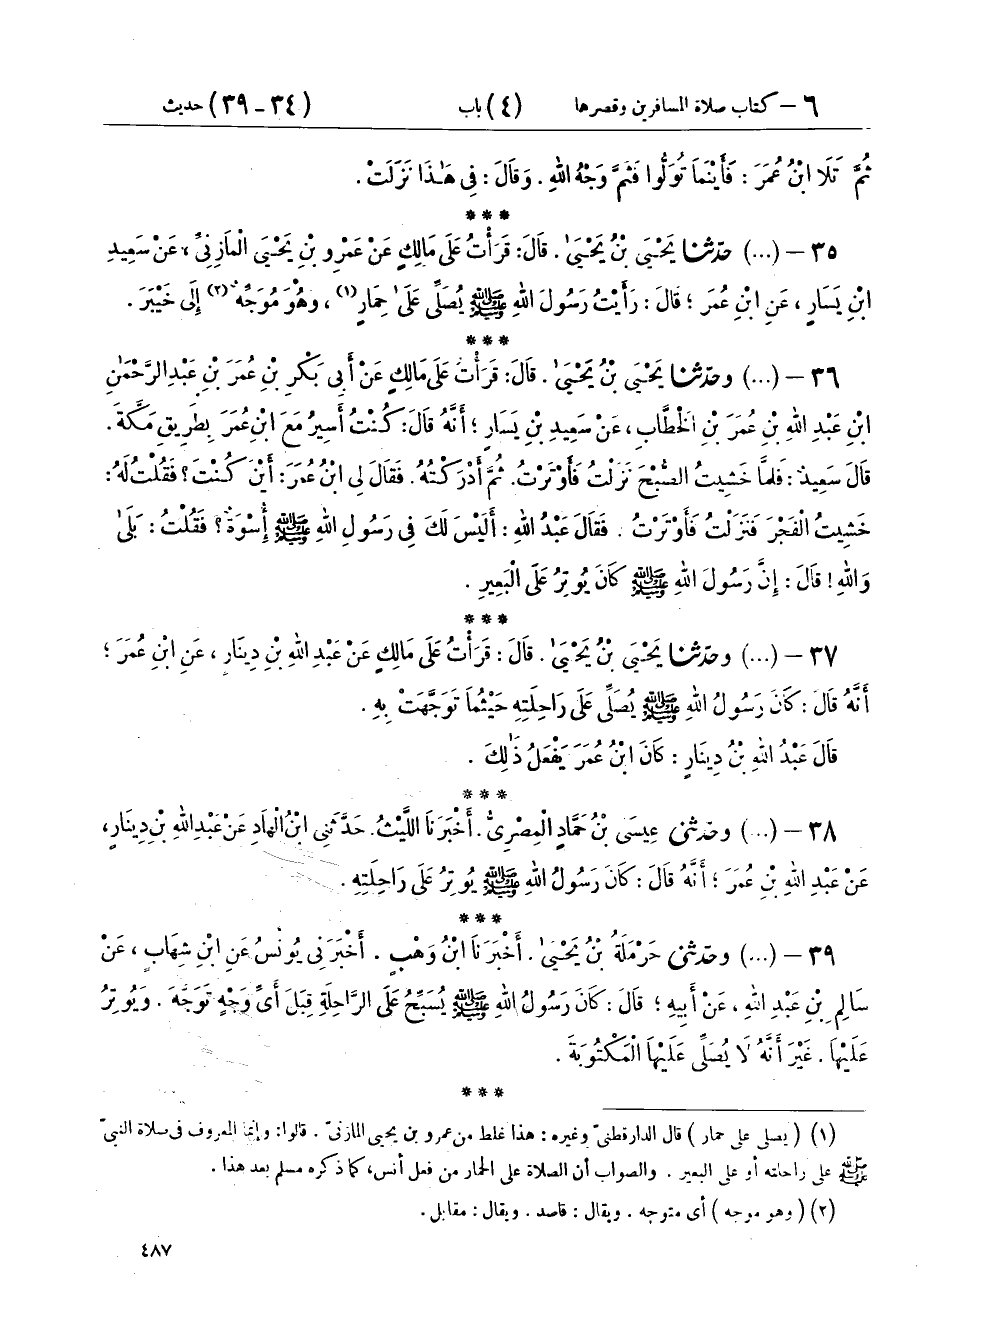 ٦ – كتاب صلاة المسافرين وقصرها (٤) باب (٣٤ – ٣٩) حديث
ثُمَّ تَلَا ابْنُ عُمَرَ : فَأَيْنَمَا تُوَلُّوا فَثَمَّ وَجْهُ اللهِ . وَقَالَ : فِي هَٰذَا نَزَلَتْ .
* * *
٣٥ – (...) حدّثنا يَحْيَى بْنُ يَحْيَىٰ . قَالَ: قَرَأْتُ عَلَى مَالِكٍ عَنْ عَمْرِو بْنِ يَحْيَى الْمَازِنِيِّ ، عَنْ سَعِيدِ
ابْنِ يَسَارٍ ، عَنِ ابْنِ عُمَرَ ؛ قَالَ : رَأَيْتُ رَسُولَ اللهِ ﷺ يُصَلِّي عَلَىٰ حِمَارٍ (١) ، وَهُوَ مُوَجِّهٌ (٢) إِلَى خَيْبَرَ .
* * *
٣٦ – (...) وحدّثنا يَحْيَى بْنُ يَحْيَىٰ . قَالَ: قَرَأْتُ عَلَى مَالِكٍ عَنْ أَبِي بَكْرِ بْنِ عُمَرَ بْنِ عَبْدِ الرَّحْمَٰنِ
ابْنِ عَبْدِ اللهِ بْنِ عُمَرَ بْنِ الْخَطَّابِ ، عَنْ سَعِيدِ بْنِ يَسَارٍ ؛ أَنَّهُ قَالَ: كُنْتُ أَسِيرُ مَعَ ابْنِ عُمَرَ بِطَرِيقِ مَكَّةَ .
قَالَ سَعِيدٌ : فَلَمَّا خَشِيتُ الصُّبْحَ نَزَلْتُ فَأَوْتَرْتُ. ثُمَّ أَدْرَكْتُهُ. فَقَالَ لِي ابْنُ عُمَرَ: أَيْنَ كُنْتَ ؟ فَقُلْتُ لَهُ :
خَشِيتُ الْفَجْرَ فَنَزَلْتُ فَأَوْتَرْتُ . فَقَالَ عَبْدُ اللهِ : أَلَيْسَ لَكَ فِي رَسُولِ اللهِ ﷺ أُسْوَةٌ ؟ فَقُلْتُ : بَلَىٰ
وَاللهِ ! قَالَ : إِنَّ رَسُولَ اللهِ ﷺ كَانَ يُوتِرُ عَلَى الْبَعِيرِ .
* * *
٣٧ – (...) وحدّثنا يَحْيَى بْنُ يَحْيَىٰ . قَالَ : قَرَأْتُ عَلَى مَالِكٍ عَنْ عَبْدِ اللهِ بْنِ دِينَارٍ ، عَنِ ابْنِ عُمَرَ ؛
أَنَّهُ قَالَ : كَانَ رَسُولُ اللهِ ﷺ يُصَلِّي عَلَى رَاحِلَتِهِ حَيْثُمَا تَوَجَّهَتْ بِهِ .
قَالَ عَبْدُ اللهِ بْنُ دِينَارٍ : كَانَ ابْنُ عُمَرَ يَفْعَلُ ذَٰلِكَ .
* * *
٣٨ – (...) وحدّثني عِيسَى بْنُ حَمَّادٍ الْمِصْرِيُّ . أَخْبَرَنَا اللَّيْثُ. حَدَّثَنِي ابْنُ الْهَادِ عَنْ عَبْدِ اللهِ بْنِ دِينَارٍ،
عَنْ عَبْدِ اللهِ بْنِ عُمَرَ ؛ أَنَّهُ قَالَ : كَانَ رَسُولُ اللهِ ﷺ يُوتِرُ عَلَى رَاحِلَتِهِ .
* * *
٣٩ – (...) وحدّثني حَرْمَلَةُ بْنُ يَحْيَىٰ . أَخْبَرَنَا ابْنُ وَهْبٍ . أَخْبَرَنِي يُونُسُ عَنِ ابْنِ شِهَابٍ ، عَنْ
سَالِمِ بْنِ عَبْدِ اللهِ ، عَنْ أَبِيهِ ؛ قَالَ : كَانَ رَسُولُ اللهِ ﷺ يُسَبِّحُ عَلَى الرَّاحِلَةِ قِبَلَ أَيِّ وَجْهٍ تَوَجَّهَ . وَيُوتِرُ
عَلَيْهَا . غَيْرَ أَنَّهُ لَا يُصَلِّي عَلَيْهَا الْمَكْتُوبَةَ .
* * *
(١) ( يصلي على حمار ) قال الدارقطنيّ وغيره : هذا غلط من عمرو بن يحيى المازنيّ . قالوا: وإنما المعروف في صلاة النبيّ
ﷺ على راحلته أو على البعير . والصواب أن الصلاة على الحمار من فعل أنس، كما ذكره مسلم بعد هذا .
(٢) ( وهو موجه ) أي متوجه . ويقال : قاصد . ويقال : مقابل .
٤٨٧